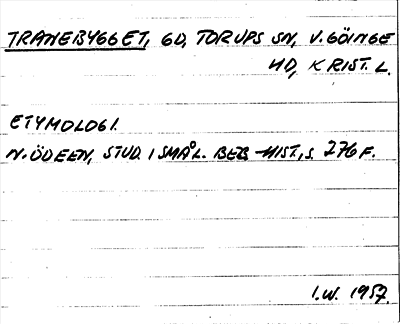 TRANEBYGGET, GD, TORUPS SN, V. GÖINGE
HD, KRIST. L.
ETYMOLOGI.
N. ÖDEEN, STUD. I SMÅL. BEB HIST., S. 276 F.
I.W. 1957.